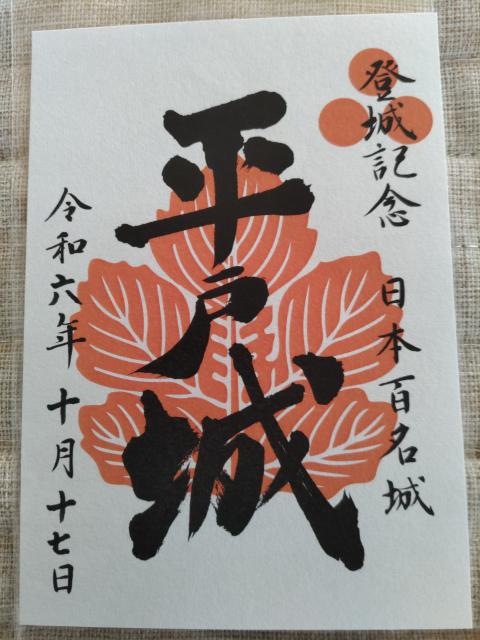 登城記念 日本百名城
平戸城
令和六年 十月十七日